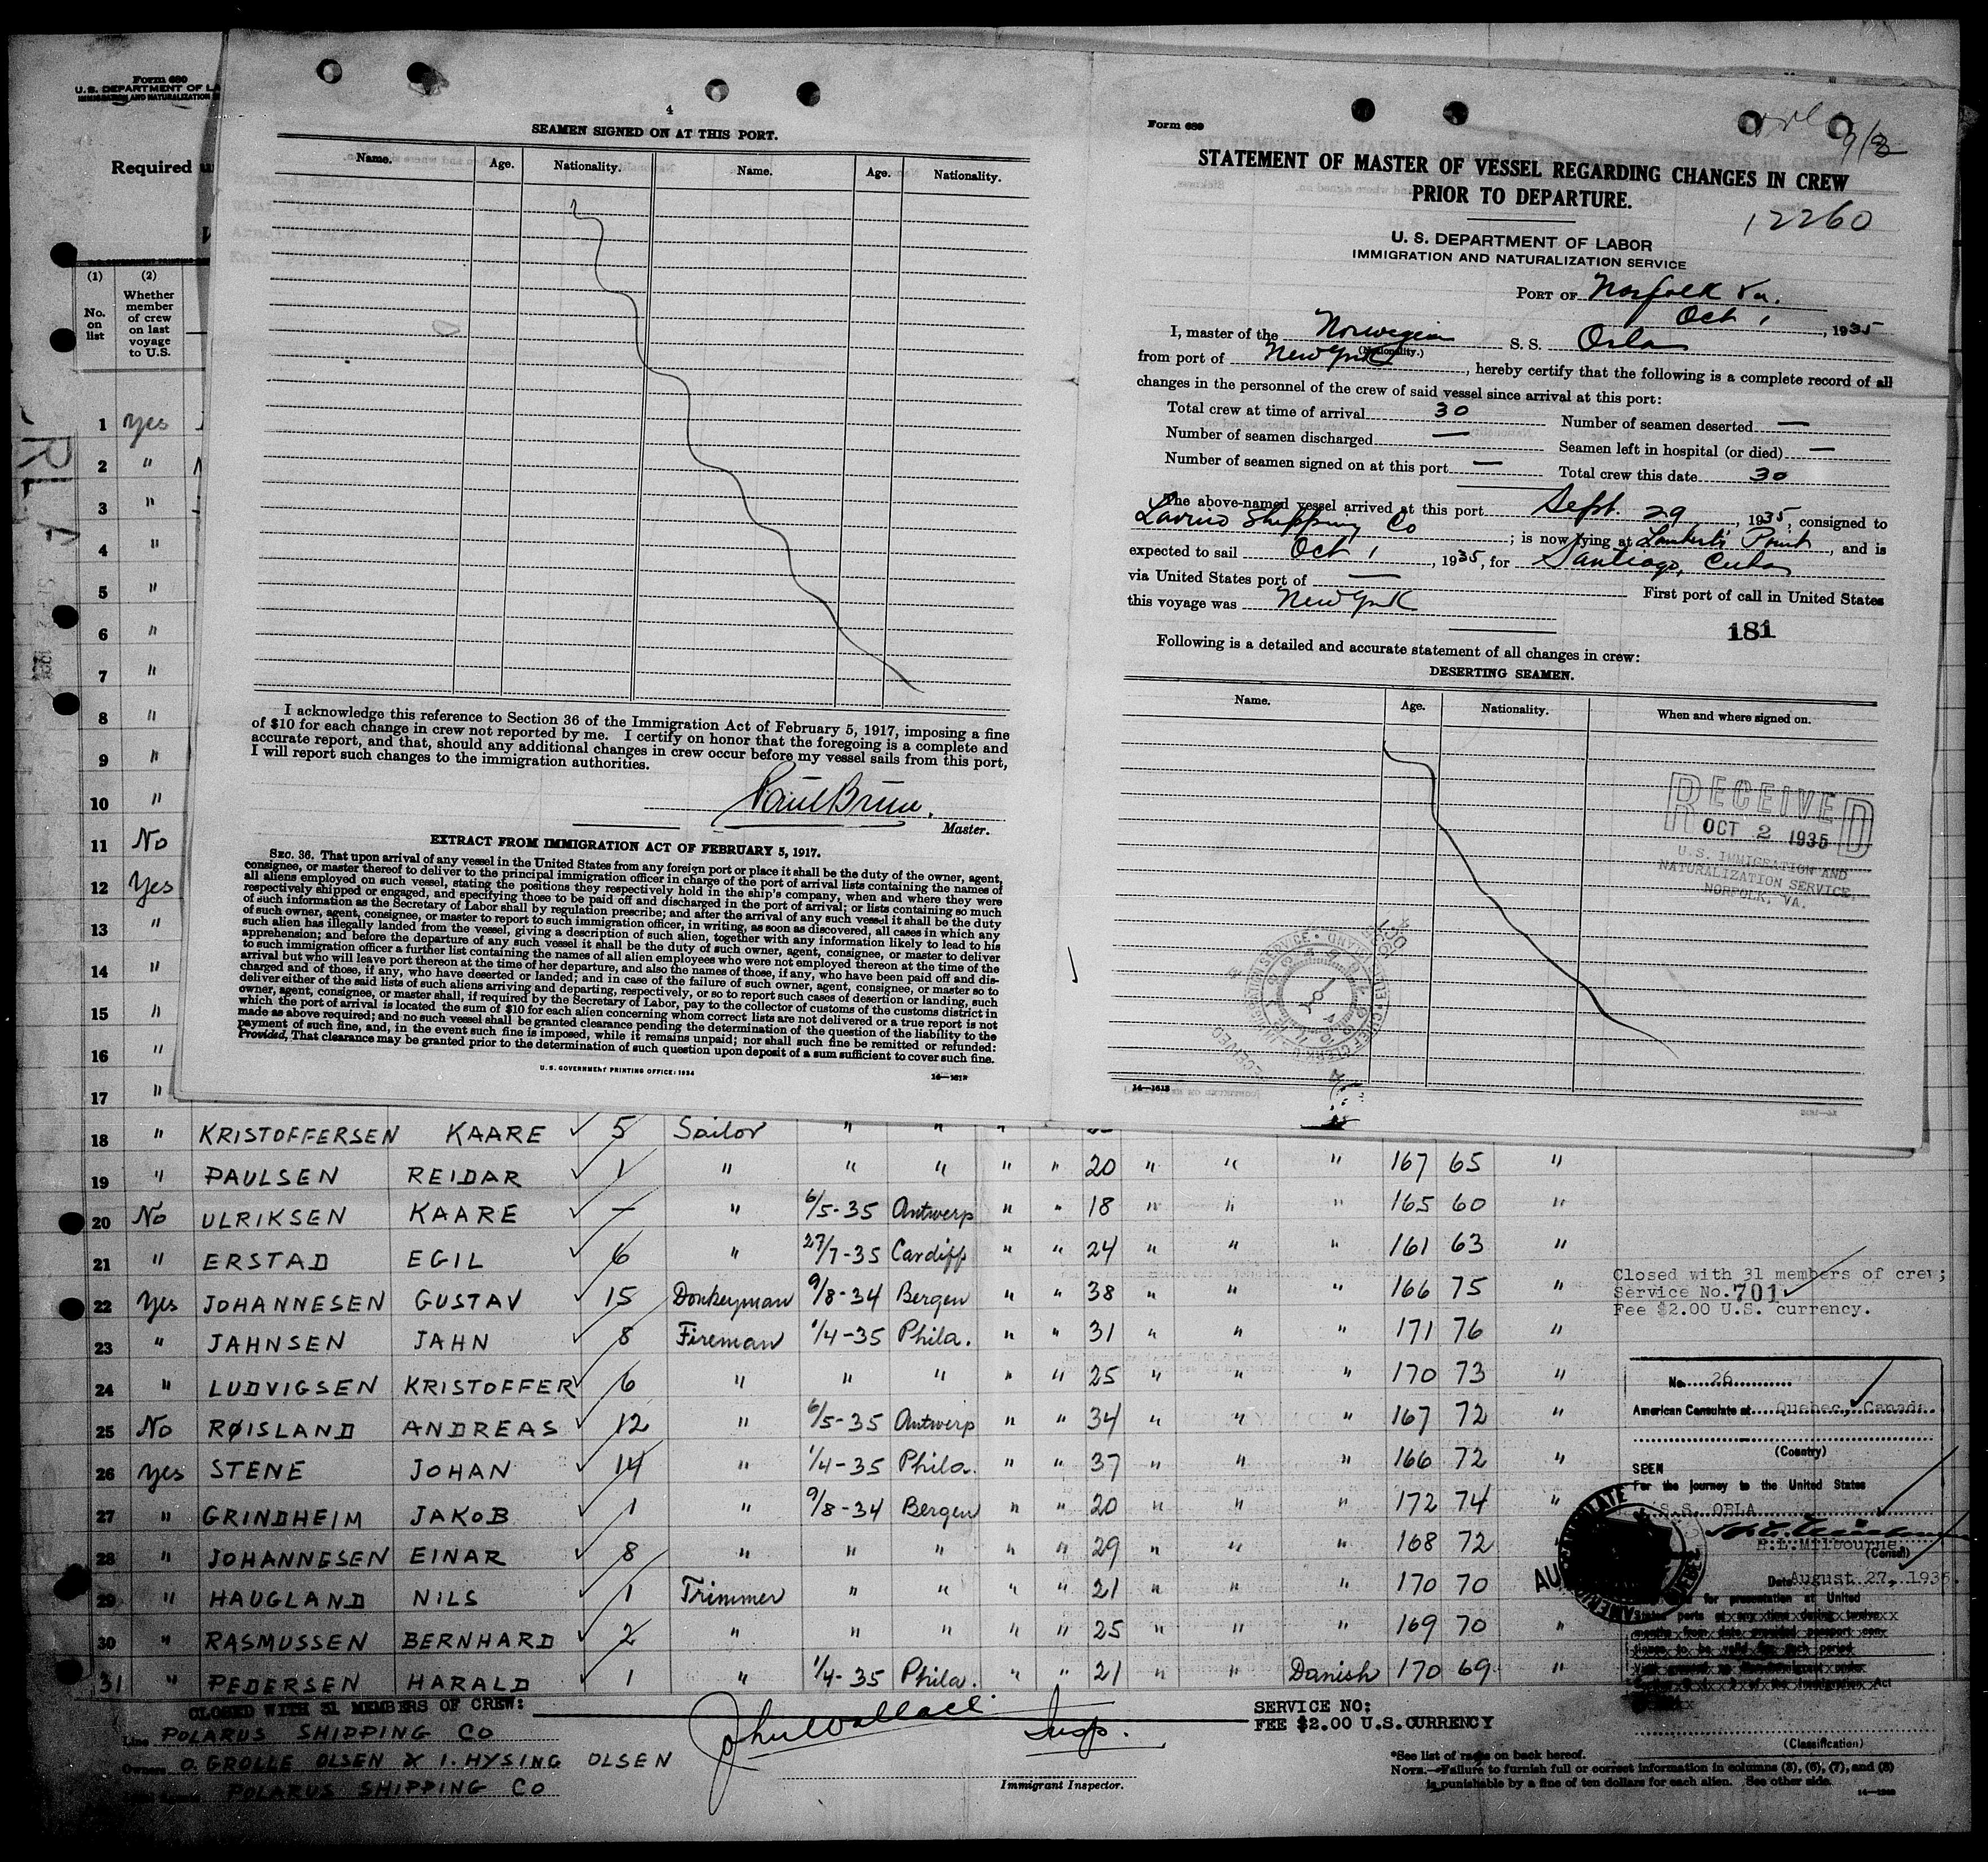 Form 689
U. S. DEPARTMENT OF LA
IMMIGRATION AND NATURALIZATION
Required u
(1) (2)
No. on list
Whether member of crew on last voyage to U.S.
1 Yes
2 "
3 "
4 "
5 "
6 "
7 "
8 "
9 "
10 "
11 No
12 Yes
13 "
14 "
15 "
16 "
17 "
4
SEAMEN SIGNED ON AT THIS PORT.
Name. Age. Nationality. Name. Age. Nationality.
I acknowledge this reference to Section 36 of the Immigration Act of February 5, 1917, imposing a fine
of $10 for each change in crew not reported by me. I certify on honor that the foregoing is a complete and
accurate report, and that, should any additional changes in crew occur before my vessel sails from this port,
I will report such changes to the immigration authorities.
Paul Bruu.
Master.
EXTRACT FROM IMMIGRATION ACT OF FEBRUARY 5, 1917.
SEC. 36. That upon arrival of any vessel in the United States from any foreign port or place it shall be the duty of the owner, agent,
consignee, or master thereof to deliver to the principal immigration officer in charge of the port of arrival lists containing the names of
all aliens employed on such vessel, stating the positions they respectively hold in the ship's company, when and where they were
respectively shipped or engaged, and specifying those to be paid off and discharged in the port of arrival; or lists containing so much
of such information as the Secretary of Labor shall by regulation prescribe; and after the arrival of any such vessel it shall be the duty
of such owner, agent, consignee, or master to report to such immigration officer, in writing, as soon as discovered, all cases in which any
such alien has illegally landed from the vessel, giving a description of such alien, together with any information likely to lead to his
apprehension; and before the departure of any such vessel it shall be the duty of such owner, agent, consignee, or master to deliver
to such immigration officer a further list containing the names of all alien employees who were not employed thereon at the time of the
arrival but who will leave port thereon at the time of her departure, and also the names of those, if any, who have been paid off and dis-
charged and of those, if any, who have deserted or landed; and in case of the failure of such owner, agent, consignee, or master so to
deliver either of the said lists of such aliens arriving and departing, respectively, or so to report such cases of desertion or landing, such
owner, agent, consignee, or master shall, if required by the Secretary of Labor, pay to the collector of customs of the customs district in
which the port of arrival is located the sum of $10 for each alien concerning whom correct lists are not delivered or a true report is not
made as above required; and no such vessel shall be granted clearance pending the determination of the question of the liability to the
payment of such fine, and, in the event such fine is imposed, while it remains unpaid; nor shall such fine be remitted or refunded:
Provided, That clearance may be granted prior to the determination of such question upon deposit of a sum sufficient to cover such fine.
U. S. GOVERNMENT PRINTING OFFICE: 1934 14—1613
Form 689
STATEMENT OF MASTER OF VESSEL REGARDING CHANGES IN CREW
PRIOR TO DEPARTURE.
12260
U. S. DEPARTMENT OF LABOR
IMMIGRATION AND NATURALIZATION SERVICE
PORT OF Norfolk Va.
Oct 1, 1935
I, master of the Norwegian S. S. Orla
(Nationality.)
from port of New York, hereby certify that the following is a complete record of all
changes in the personnel of the crew of said vessel since arrival at this port:
Total crew at time of arrival 30 Number of seamen deserted —
Number of seamen discharged — Seamen left in hospital (or died) —
Number of seamen signed on at this port — Total crew this date 30
The above-named vessel arrived at this port Sept. 29, 1935, consigned to
Lavino Shipping Co; is now lying at Lamberts Point, and is
expected to sail Oct 1, 1935, for Santiago, Cuba
via United States port of — First port of call in United States
this voyage was New York
181
Following is a detailed and accurate statement of all changes in crew:
DESERTING SEAMEN.
Name. Age. Nationality. When and where signed on.
RECEIVED
OCT 2 1935
U. S. IMMIGRATION AND
NATURALIZATION SERVICE,
NORFOLK, VA.
14—1613
18 " KRISTOFFERSEN KAARE 5 Sailor " " " "
19 " PAULSEN REIDAR 1 " " " " " 20 " " " 167 65 "
20 No ULRIKSEN KAARE — " 6/5-35 Antwerp " " 18 " " " 165 60 "
21 " ERSTAD EGIL 6 " 27/7-35 Cardiff " " 24 " " " 161 63 "
22 Yes JOHANNESEN GUSTAV 15 Donkeyman 9/8-34 Bergen " " 38 " " " 166 75 "
23 " JAHNSEN JAHN 8 Fireman 1/4-35 Phila. " " 31 " " " 171 76 "
24 " LUDVIGSEN KRISTOFFER 6 " " " " " 25 " " " 170 73 "
25 No RØISLAND ANDREAS 12 " 6/5-35 Antwerp " " 34 " " " 167 72 "
26 Yes STENE JOHAN 14 " 1/4-35 Phila. " " 37 " " " 166 72 "
27 " GRINDHEIM JAKOB 1 " 9/8-34 Bergen " " 20 " " " 172 74 "
28 " JOHANNESEN EINAR 8 " " " " " 29 " " " 168 72
29 " HAUGLAND NILS 1 Trimmer " " " " 21 " " " 170 70
30 " RASMUSSEN BERNHARD 2 " " " " " 25 " " " 169 70 "
31 " PEDERSEN HARALD 1 " 1/4-35 Phila. " " 21 " " Danish 170 69 "
Closed with 31 members of crew;
Service No. 701
Fee $2.00 U.S. currency.
No. 26
American Consulate at Quebec, Canada.
(Country)
SEEN
For the journey to the United States
S.S. ORLA
H.L.Milbourne
(Consul)
Date August 27, 1935.
CLOSED WITH 31 MEMBERS OF CREW: SERVICE NO:
FEE $2.00 U.S. CURRENCY
Line POLARUS SHIPPING CO
Owners O. GROLLE OLSEN & I. HYSING OLSEN
POLARUS SHIPPING CO
John Wallace Insp.
Immigrant Inspector.
(Classification)
*See list of races on back hereof.
NOTE.—Failure to furnish full or correct information in columns (3), (6), (7), and (8)
is punishable by a fine of ten dollars for each alien. See other side.